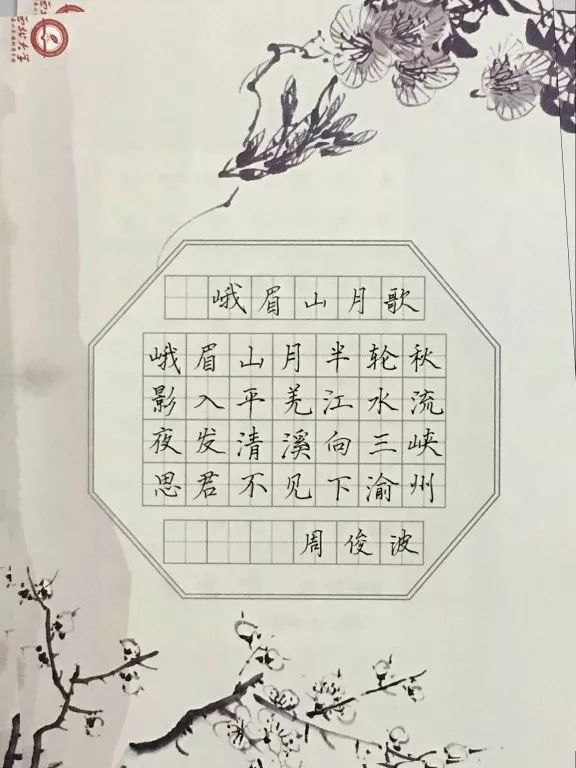 西北大学
峨眉山月歌
峨眉山月半轮秋
影入平羌江水流
夜发清溪向三峡
思君不见下渝州
周俊波